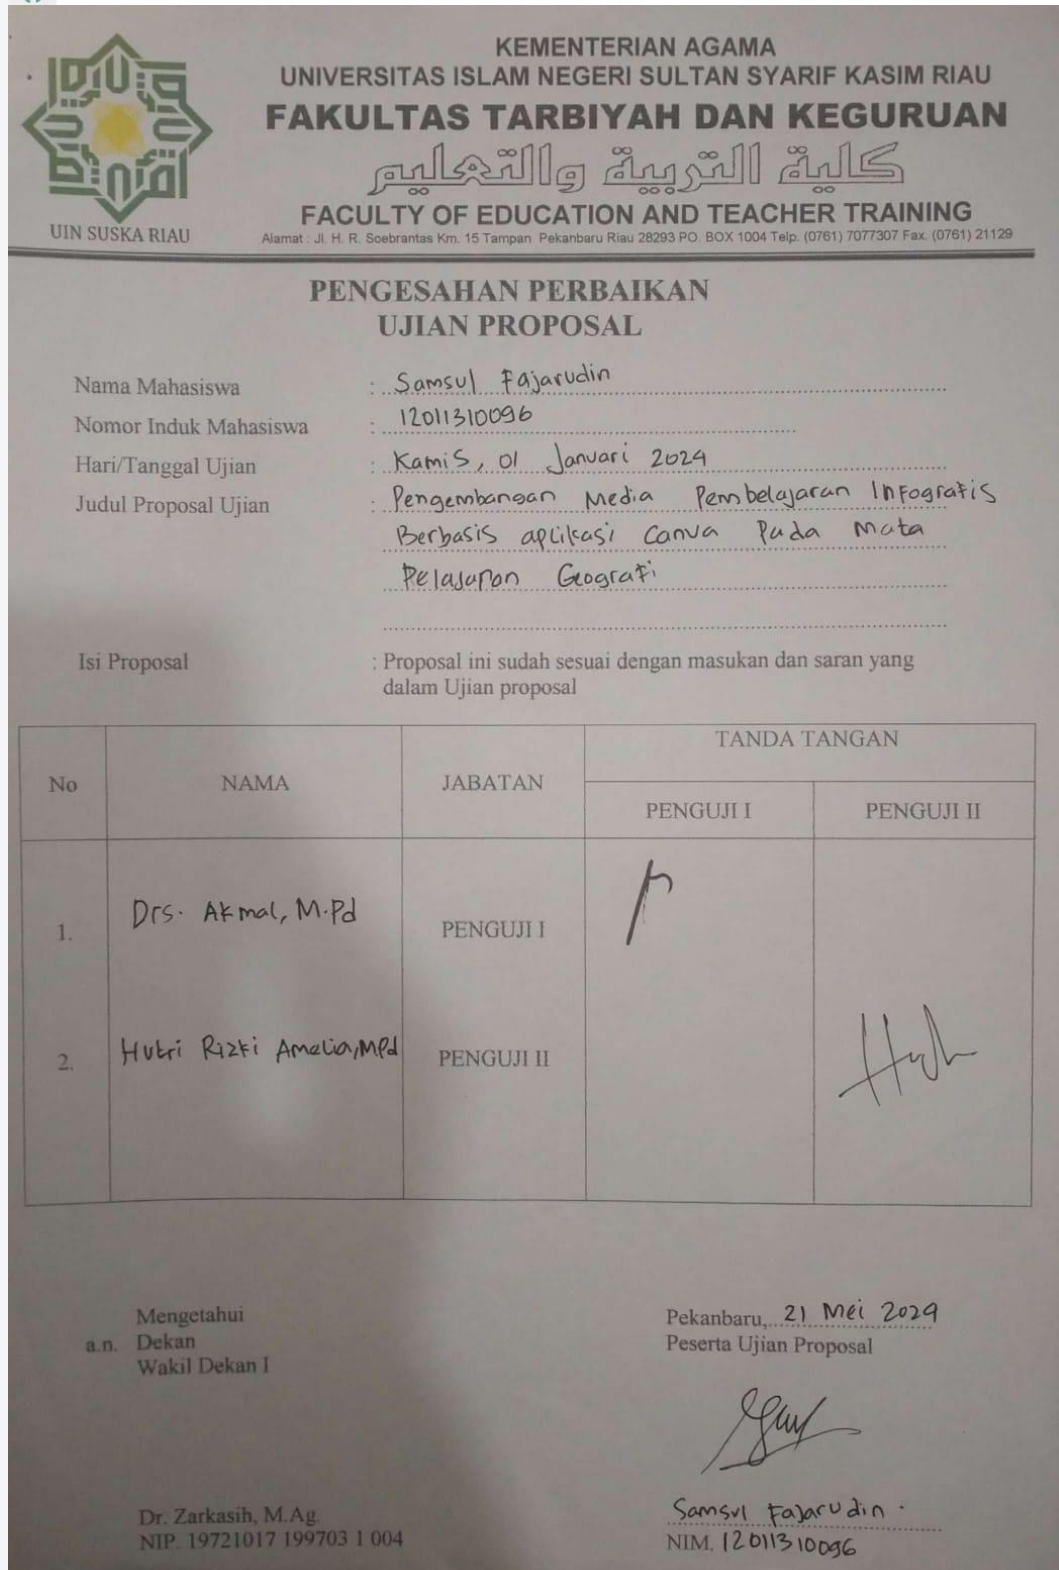 KEMENTERIAN AGAMA
UNIVERSITAS ISLAM NEGERI SULTAN SYARIF KASIM RIAU
FAKULTAS TARBIYAH DAN KEGURUAN
كلية التربية والتعليم
FACULTY OF EDUCATION AND TEACHER TRAINING
UIN SUSKA RIAU
Alamat : Jl. H. R. Soebrantas Km. 15 Tampan Pekanbaru Riau 28293 PO. BOX 1004 Telp. (0761) 7077307 Fax. (0761) 21129
PENGESAHAN PERBAIKAN
UJIAN PROPOSAL
Nama Mahasiswa : Samsul Fajarudin
Nomor Induk Mahasiswa : 12011310096
Hari/Tanggal Ujian : Kamis, 01 Januari 2024
Judul Proposal Ujian : Pengembangan Media Pembelajaran Infografis
Berbasis aplikasi Canva Pada Mata
Pelajaran Geografi
Isi Proposal : Proposal ini sudah sesuai dengan masukan dan saran yang
dalam Ujian proposal
No NAMA JABATAN TANDA TANGAN
PENGUJI I PENGUJI II
1. Drs. Akmal, M.Pd PENGUJI I
2. Hutri Rizki Amelia, MPd PENGUJI II
Mengetahui
a.n. Dekan
Wakil Dekan I
Dr. Zarkasih, M.Ag.
NIP. 19721017 199703 1 004
Pekanbaru, 21 Mei 2024
Peserta Ujian Proposal
Samsul Fajarudin.
NIM. 12011310096